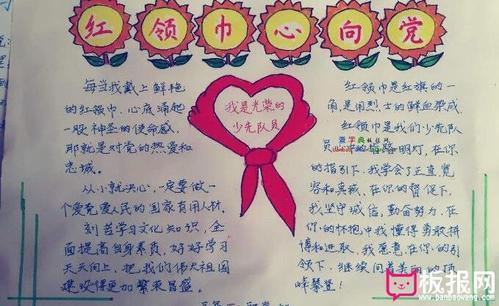 红领巾心向党
每当我戴上鲜艳
的红领巾,心底涌起
一股神圣的使命感,
那就是对党的热爱和
忠诚。
从小就决心,一定要做一
个爱党爱人民的国家有用人材.
刻苦学习文化知识,全
面提高自身素质,好好学习
天天向上,把我们伟大祖国
建设得更加繁荣昌盛。
我是光荣的
少先队员
红领巾是红旗的一
角是用烈士的鲜血染成
红领巾是我们少先队
员的指路明灯,在你
的指引下,我学会了正直宽
容和真诚,在你的督促下,
我坚守诚信,勤奋努力,在
你的怀抱中我懂得勇敢拼
搏和进取,我愿意在你的引
领下,继续向着美丽的
攀登!
板报网
www.banbaowang.com